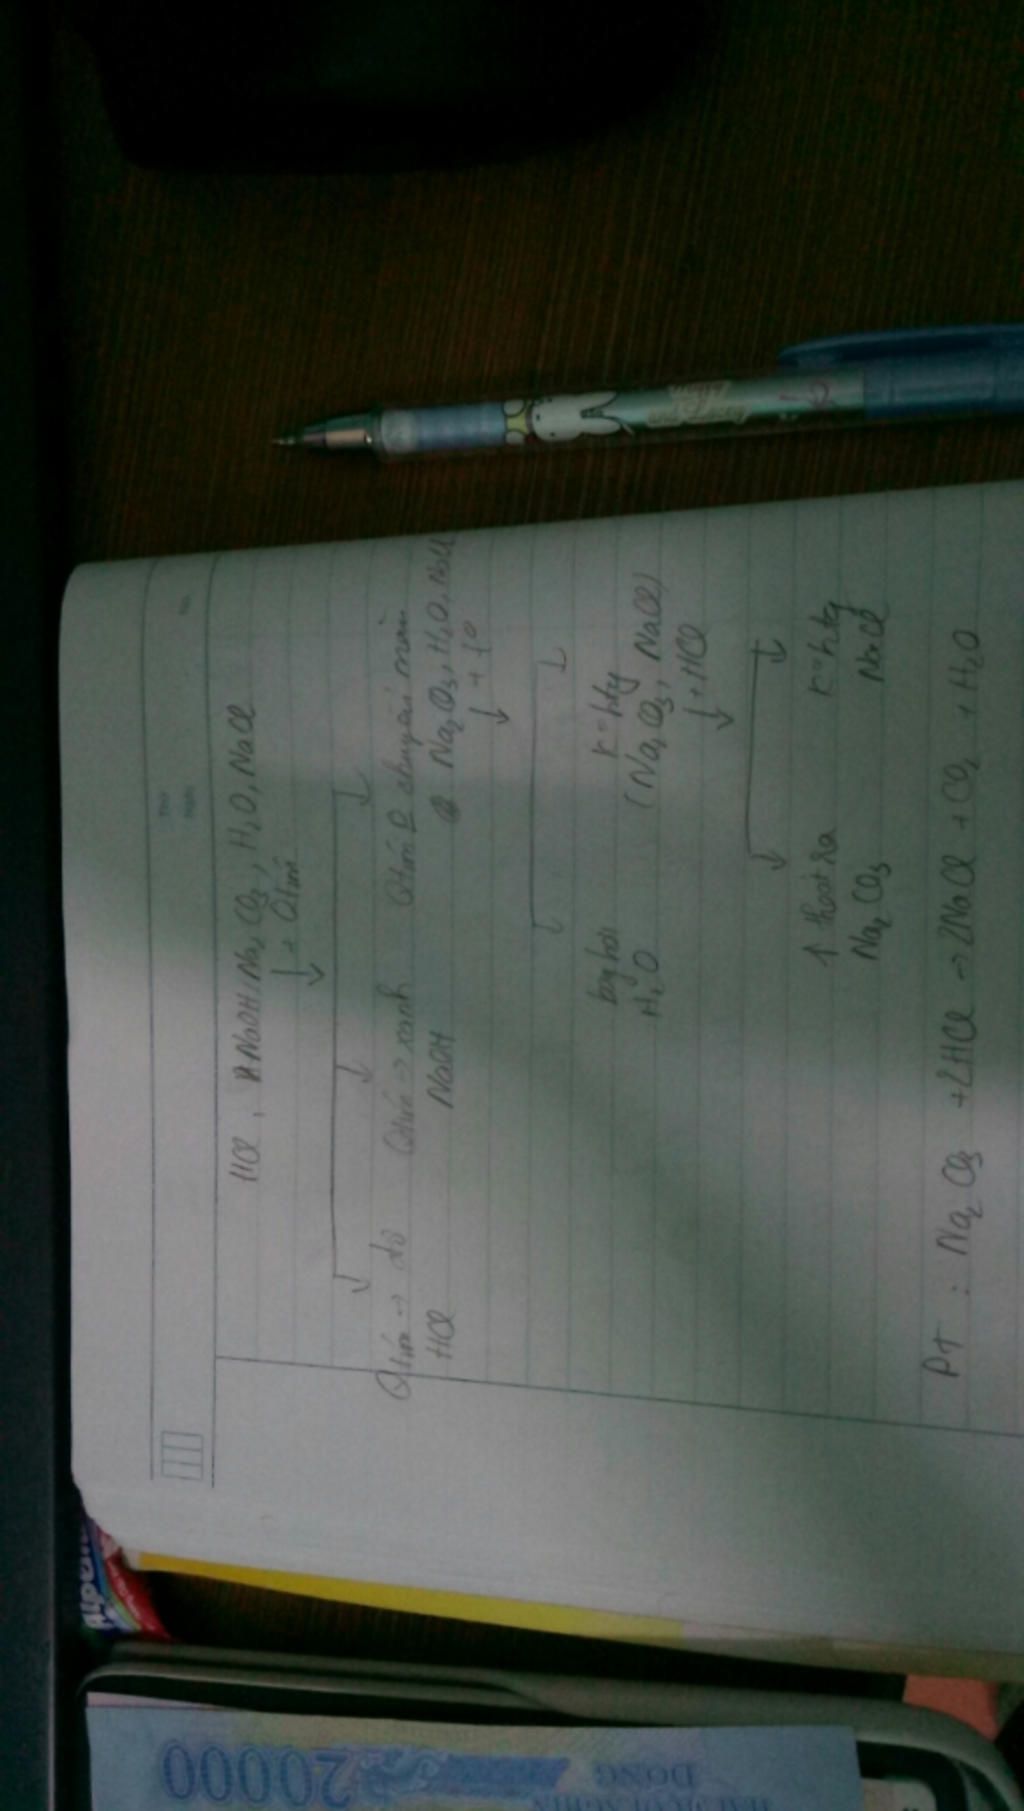 HCl, NaOH, Na2CO3, H2O, NaCl
↓ + Qtím
Qtím → đỏ Qtím → xanh Qtím ko chuyển màu
HCl NaOH Na2CO3, H2O, NaCl
↓ + t°
bay hơi k = htg
H2O (Na2CO3, NaCl)
↓ + HCl
↑ thoát ra k = htg
Na2CO3 NaCl
PT : Na2CO3 + 2HCl → 2NaCl + CO2 + H2O
20000
ĐỒNG